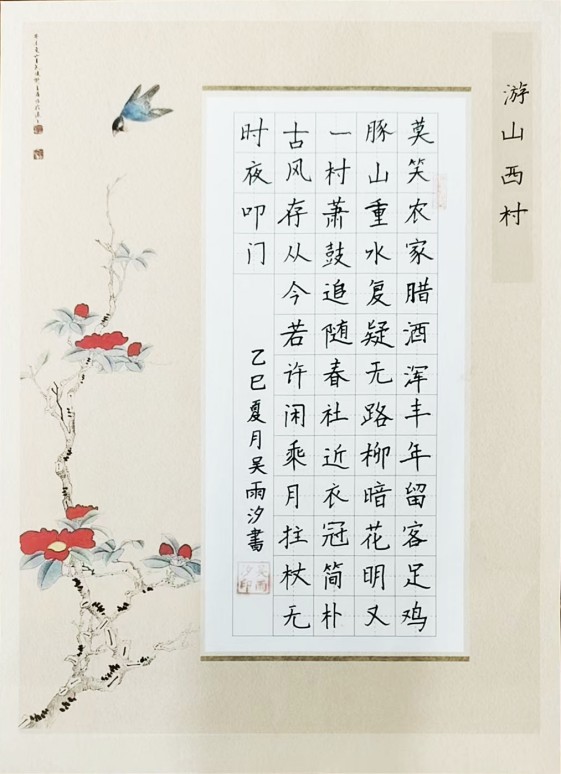 游山西村
莫笑农家腊酒浑丰年留客足鸡
豚山重水复疑无路柳暗花明又
一村萧鼓追随春社近衣冠简朴
古风存从今若许闲乘月拄杖无
时夜叩门
乙巳夏月吴雨汐書